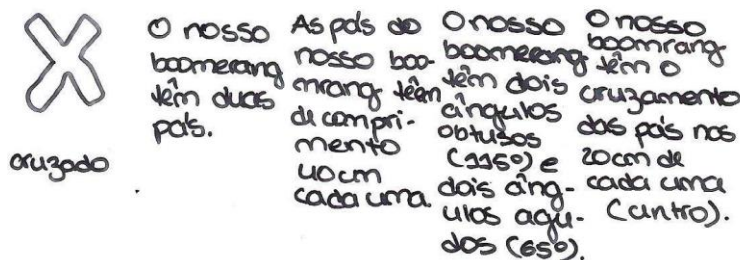 cruzado
O nosso
boomerang
têm duas
pás.
As pás do
nosso boo-
mrang têm
de compri-
mento
40cm
cada uma.
O nosso
boomerang
têm dois
ângulos
obtusos
(115º) e
dois âng-
ulos agu-
dos (65º).
O nosso
boomrang
têm o
cruzamento
das pás nos
20cm de
cada uma
(centro).